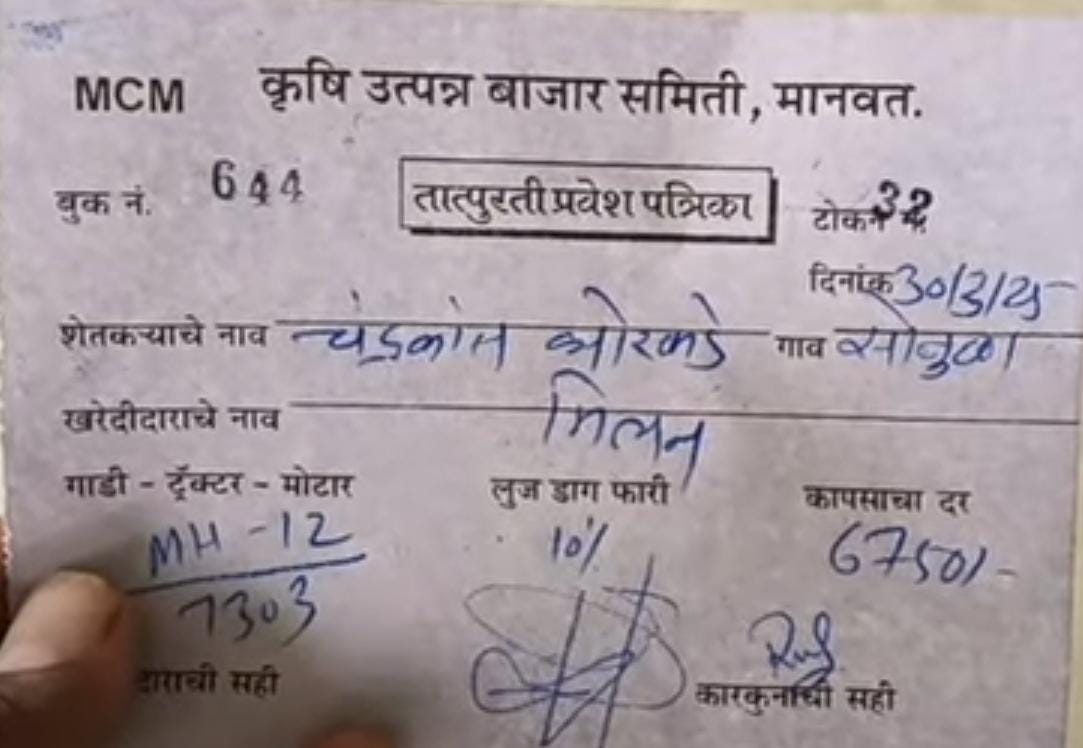 MCM कृषि उत्पन्न बाजार समिती, मानवत.
बुक नं. 644 तात्पुरती प्रवेश पत्रिका टोकन नं. 32
दिनांक 30/3/25
शेतकऱ्याचे नाव चंद्रकांत गाव सोनुळा
खरेदीदाराचे नाव मिलन
गाडी - ट्रॅक्टर - मोटार लुज डाग फारी कापसाचा दर
MH-12 10% 6750/-
7303
दाराची सही कारकुनाची सही